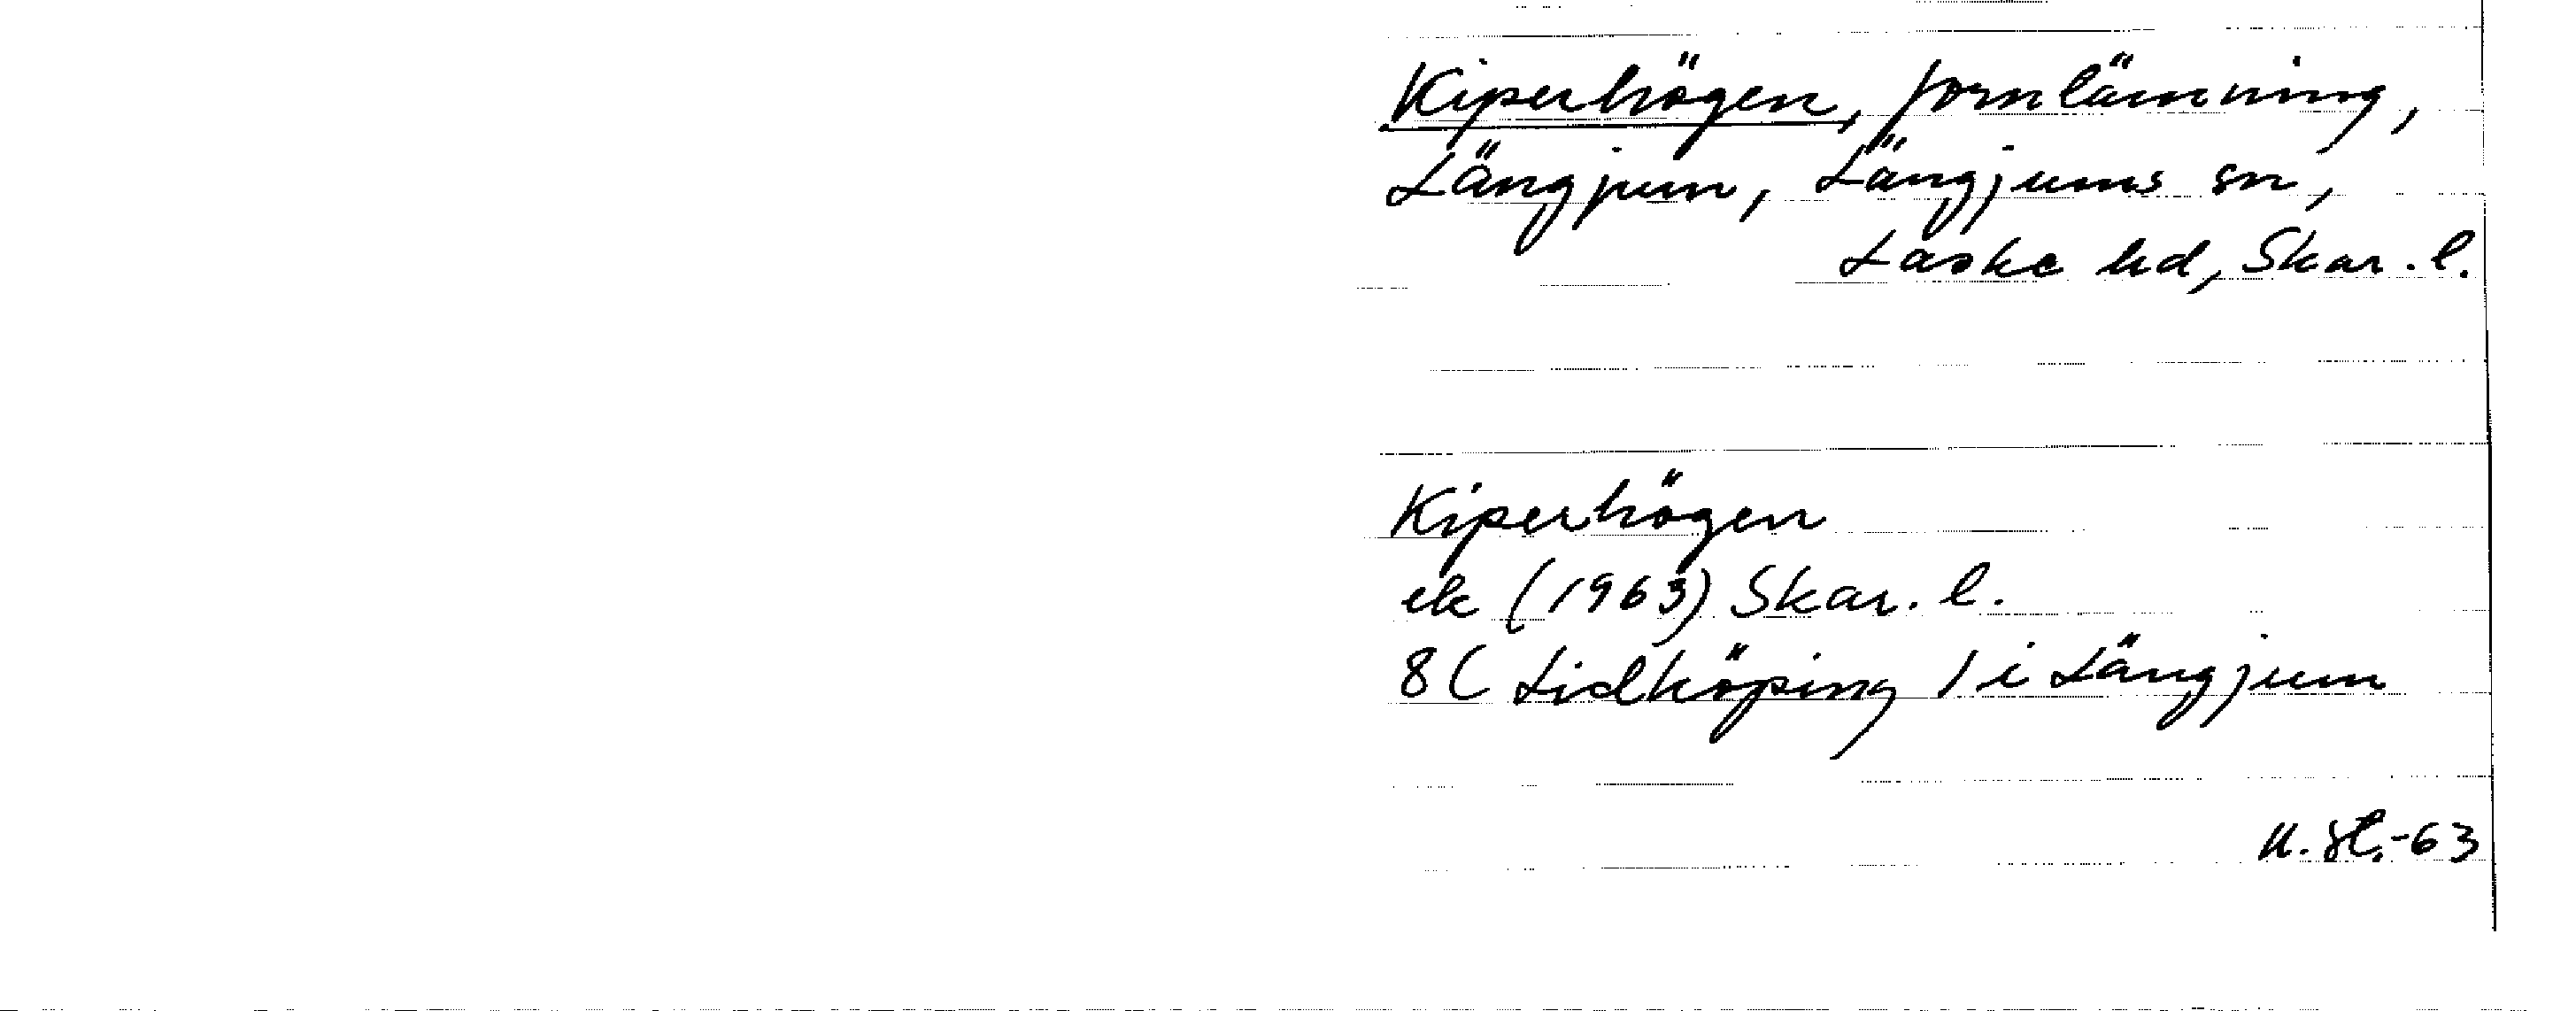 Kiperhögen, fornlämning,
Längjum, Längjums sn,
Laske hd, Skar. l.
Kiperhögen
ek (1963) Skar. l.
8C Lidköping 1 i Längjum
-63